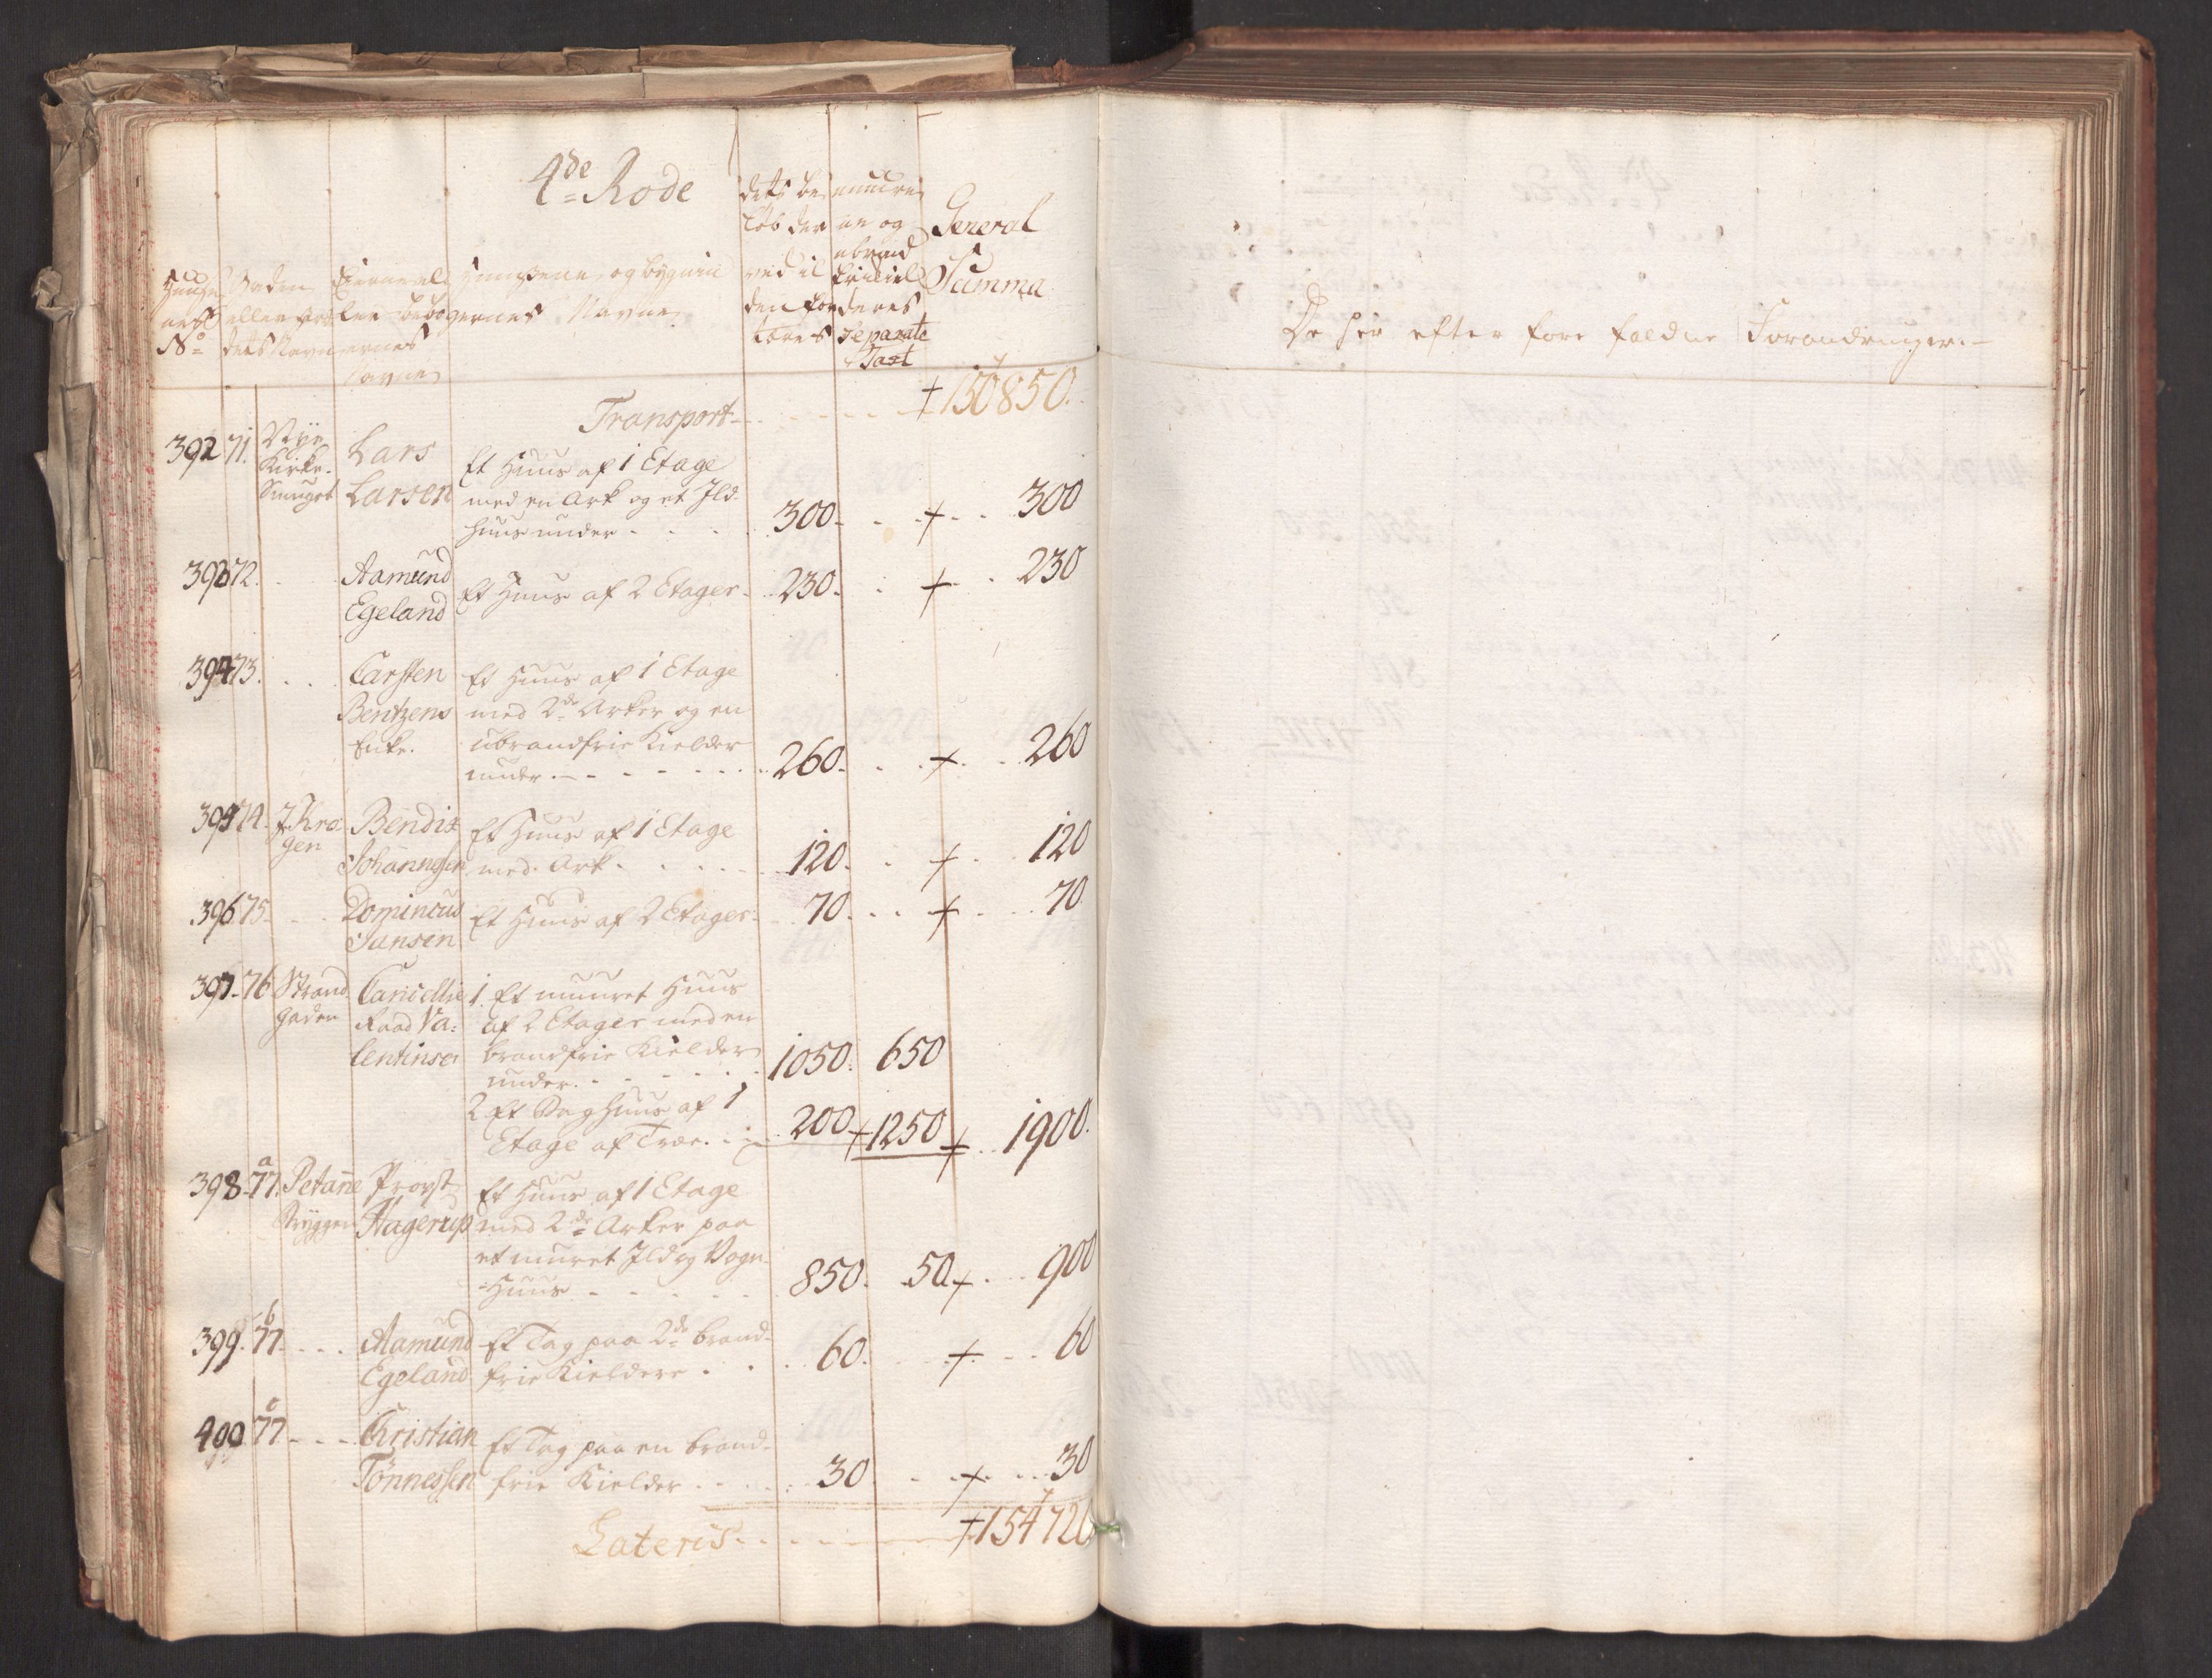 4de Rode
General
Summa
Huuse Gaden Eierne el
eller
No dets Navn ernes Navne
dets be
løb der
Separate
Taxt
Transport - + 150850.
392 71. Nye Kirke- Smuget Lars Larsen Et Huus af 1 Etage
med en Ark og et Ild-
huus under - - - 300. + 300
393 72. Aamund Egeland Et Huus af 2 Etager. 230. + 230
394 73. Carsten Bentzens Enke. Et Huus af 1 Etage
med 2de Arker og en
ubrandfrie Kielder
under - - - 260. + 260
395 74. I Kra gen Bendix Johannesen Et Huus af 1 Etage
med Ark - - - 120. + 120
396 75. Domincus Jansen Et Huus af 2 Etager. 70. + 70
397. 76 Strand gaden Cancellie Raad Va= lentinsen 1. Et muuret Huus
af 2 Etager med en
brandfrie Kielder
under. - - - 1050. 650
2 Et Baghuus af 1
Etage af Træe. 200 + 1250 + 1900.
398. 77.a Bryggen Provst Hagerup Et Huus af 1 Etage
med 2de Arker paa
et muret Ild og Vogn
=Huus - - - 850. 50. + 900
399. 77.b Aamund Egeland Et Tag paa 2de brand-
frie Kieldere. 60. + 60
400 77 c Christian Tönnessen Et Tag paa en brand-
frie Kielder - - 30. + 30
Lateris - - - + 154720
De her efter fore faldne Forandringer. -